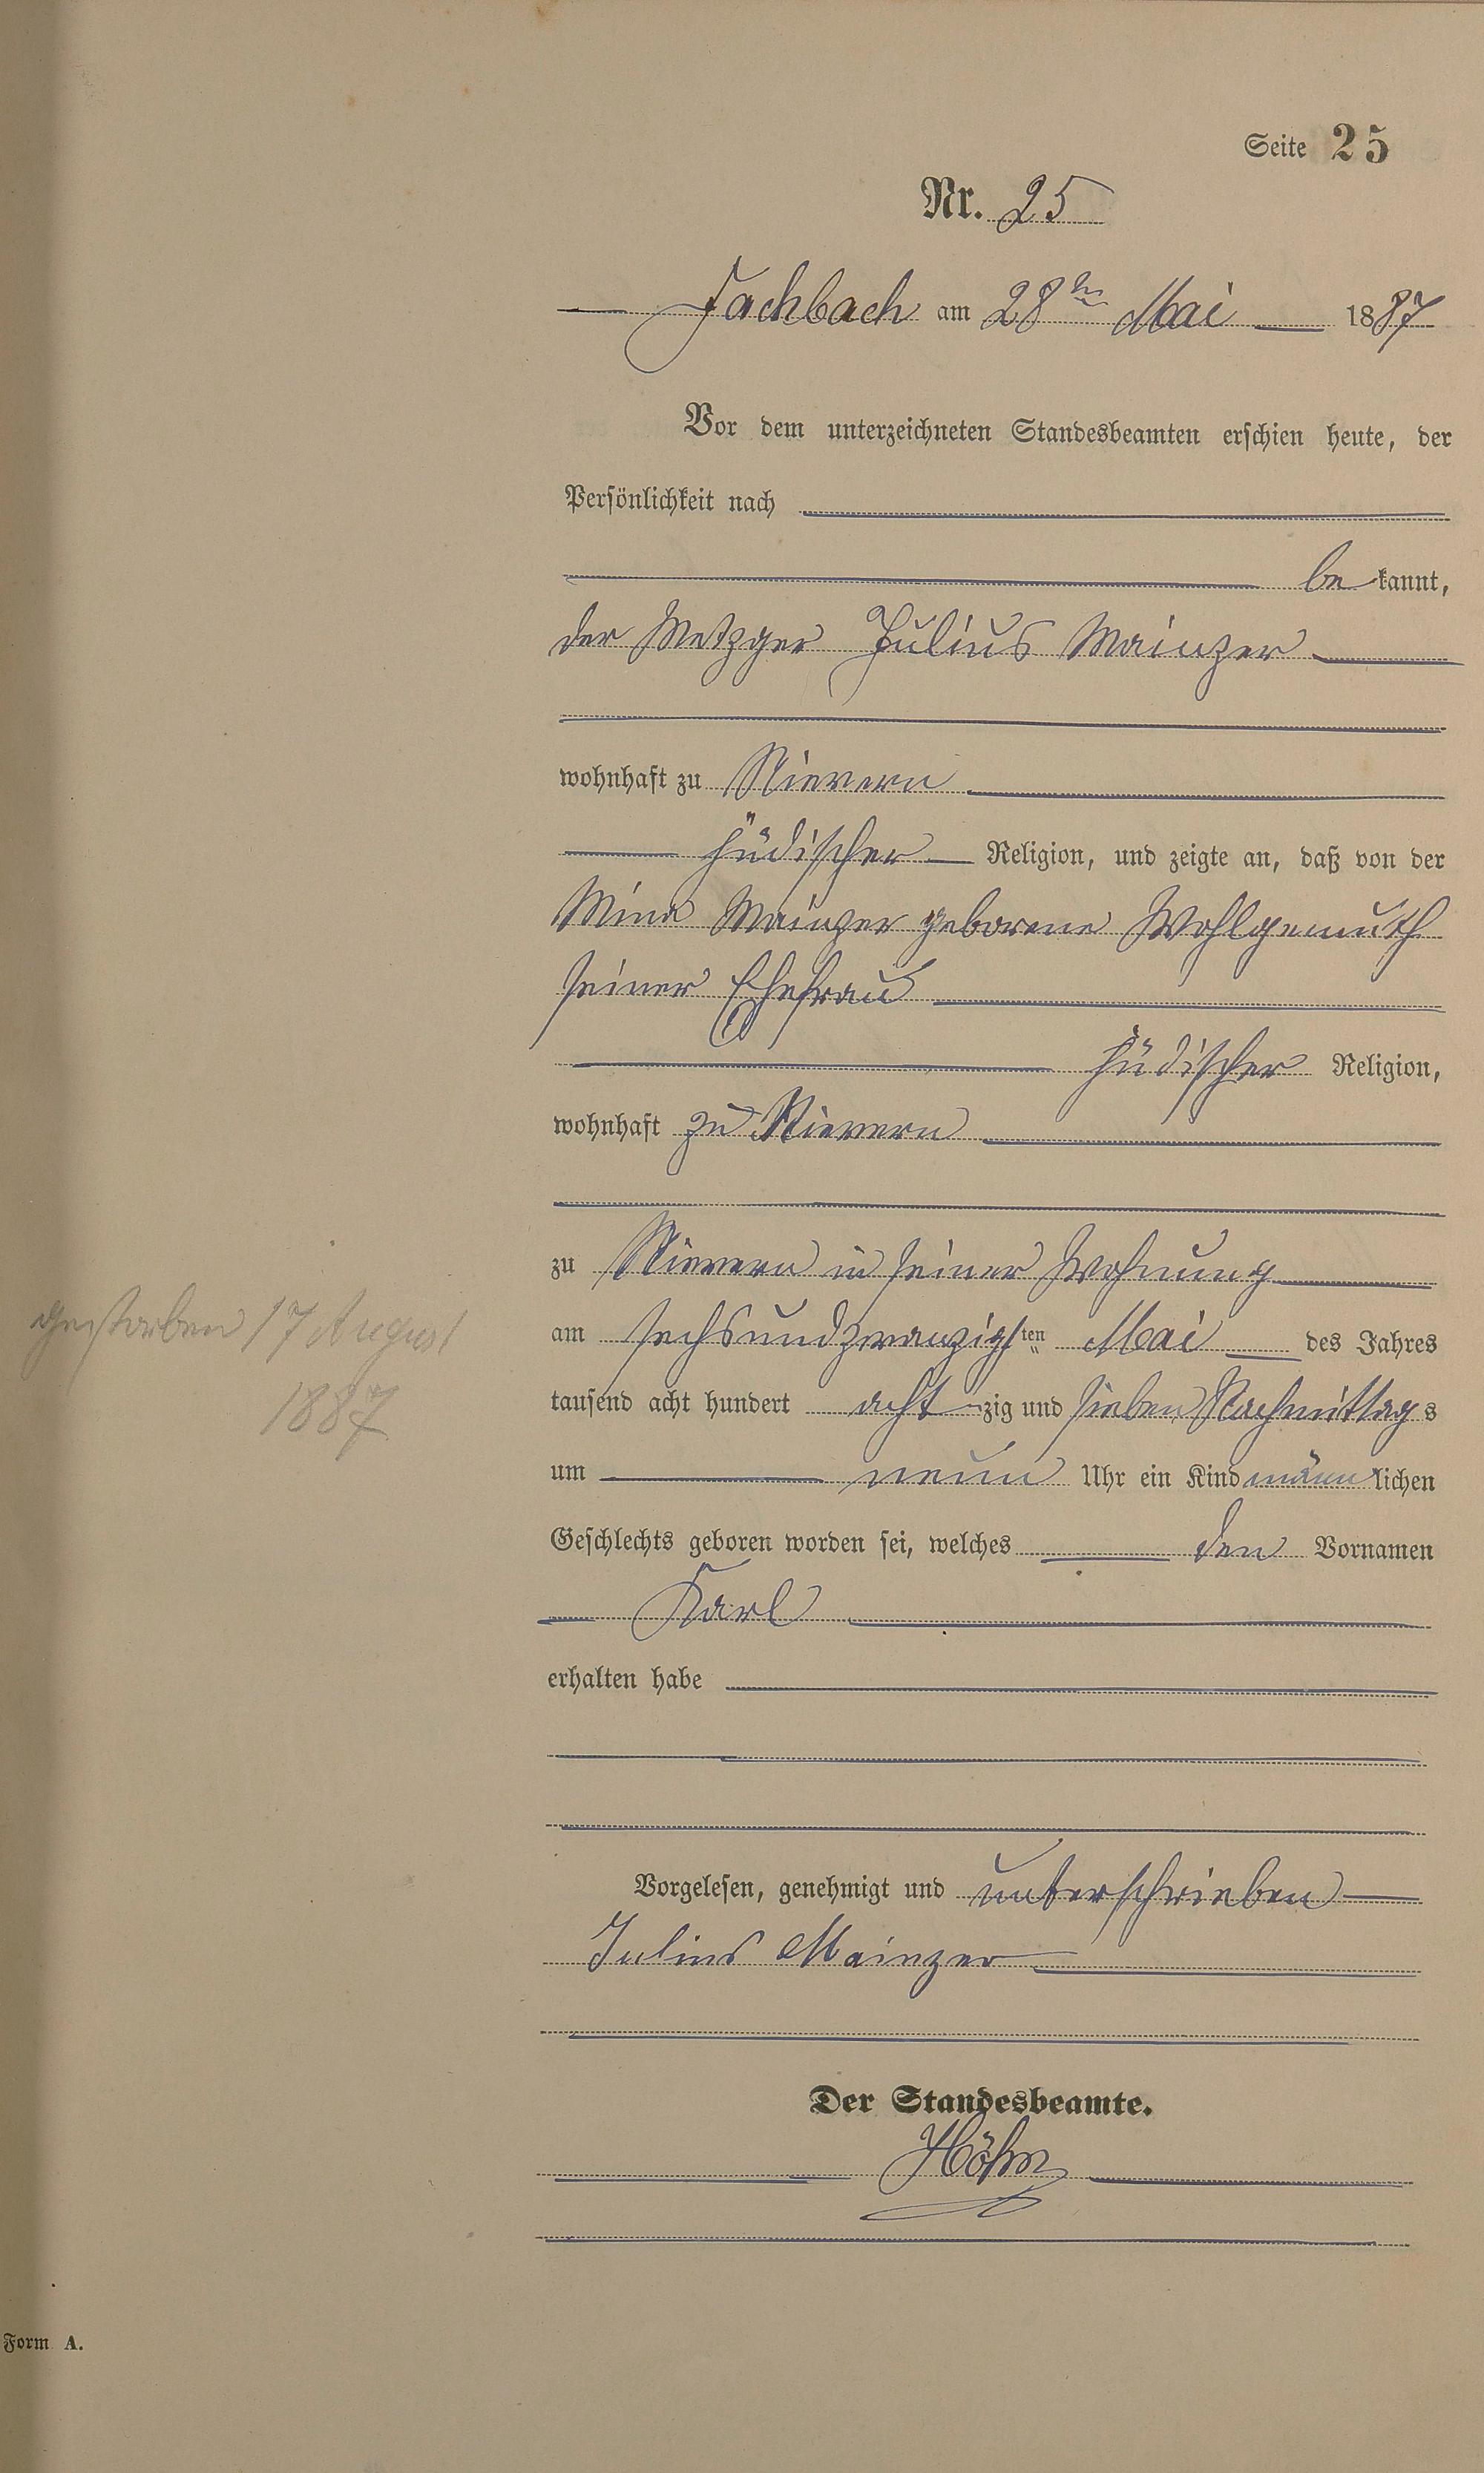 Seite 25
Nr. 25
Fachbach am 28ten Mai 1887
Vor dem unterzeichneten Standesbeamten erschien heute, der
Persönlichkeit nach
bekannt,
der Metzger Julius Mainzer
wohnhaft zu Nievern
jüdischer Religion, und zeigte an, daß von der
Mina Mainzer geborene Wohlgemuth
seiner Ehefrau
jüdischer Religion,
wohnhaft zu Nievern
zu Nievern in seiner Wohnung
am sechsundzwanzigsten Mai des Jahres
gestorben 17 August
1887
tausend acht hundert achtzig und sieben Nachmittags
um neun Uhr ein Kind männlichen
Geschlechts geboren worden sei, welches den Vornamen
Karl
erhalten habe
Vorgelesen, genehmigt und unterschrieben
Julius Mainzer
Der Standesbeamte.
Höhn
Form A.